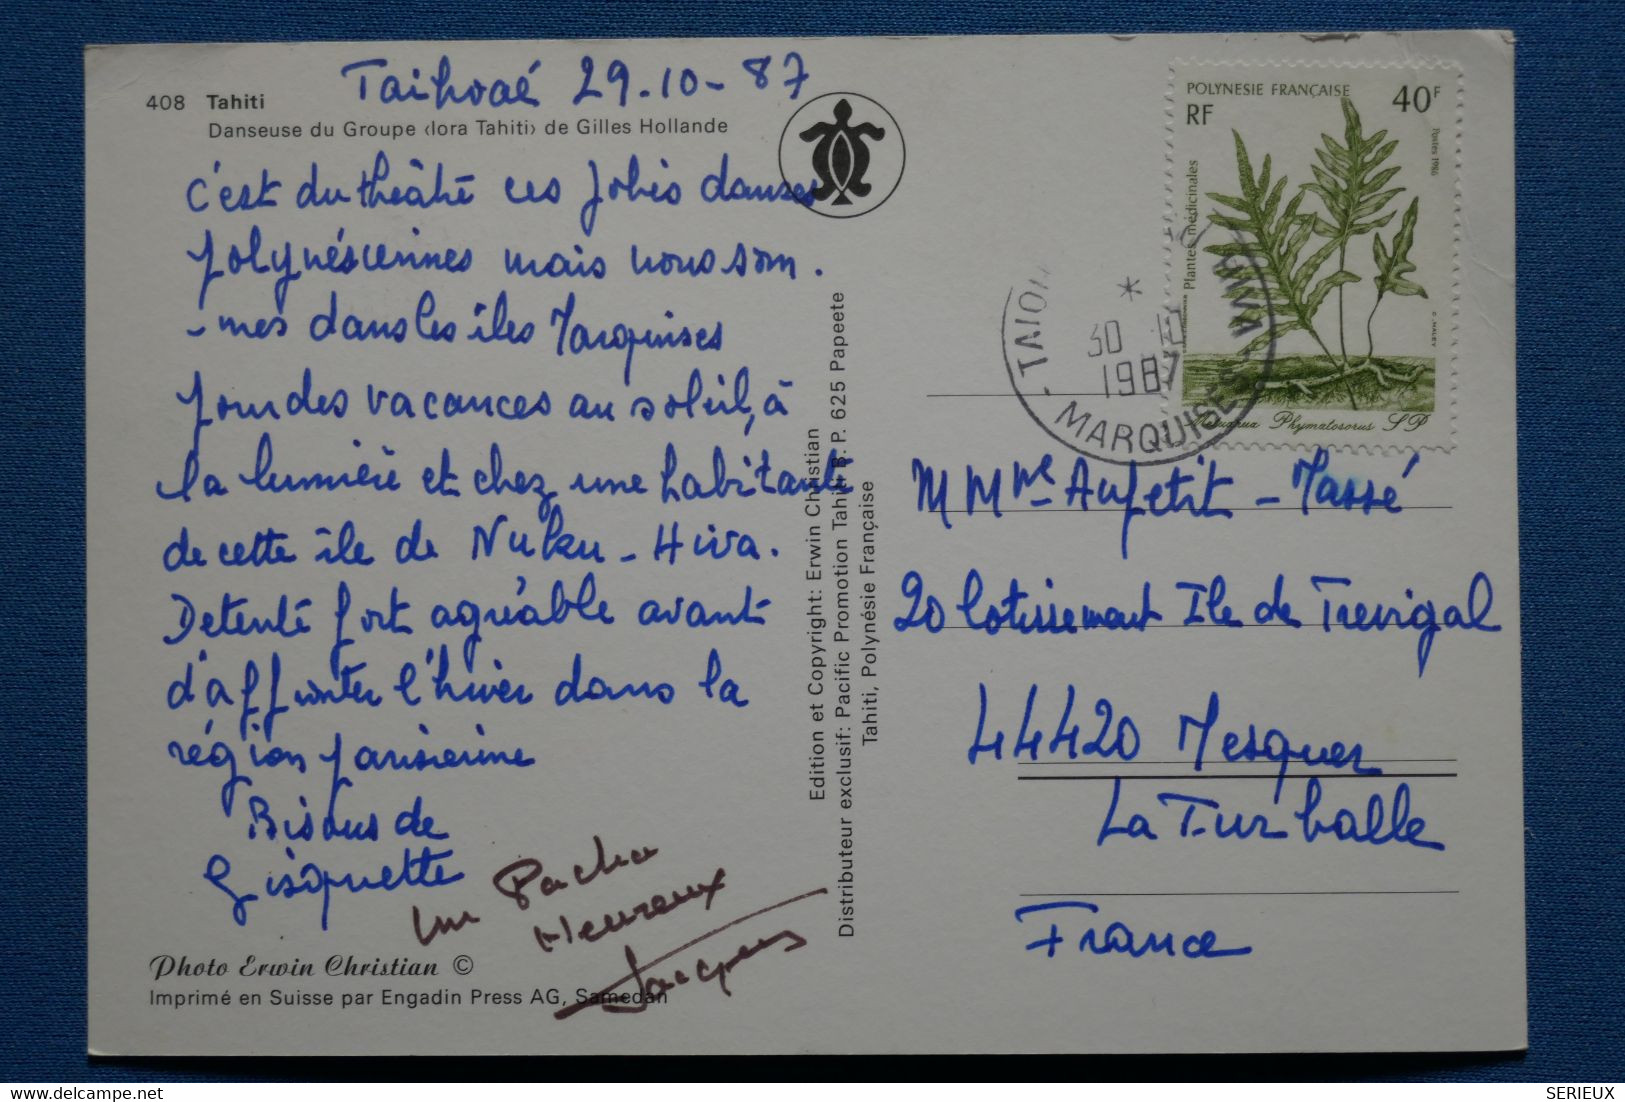 Taihoaé 29.10-87
408 Tahiti
Danseuse du Groupe ‹Iora Tahiti› de Gilles Hollande
c'est du théâtre ces jolies danses
polynésciennes mais nous som.
-mes dans les îles Marquises
pour des vacances au soleil, à
la lumière et chez une habitante
de cette île de Nuku-Hiva.
Detente fort agréable avant
d'affronter l'hiver dans la
région parisienne
Bisous de
Gisquette
un Pacha
Heureux
Jacques
Photo Erwin Christian ©
Imprimé en Suisse par Engadin Press AG, Samedan
Edition et Copyright: Erwin Christian
Distributeur exclusif: Pacific Promotion Tahiti B. P. 625 Papeete
Tahiti, Polynésie Française
POLYNESIE FRANÇAISE
RF
40F
Postes 1986
Plantes médicinales
Phymatosorus SP
30 10
1987
MARQUISES
M Mme Aupetit - Massé
20 lotissement Ile de Trevigal
44420 Mesquer
La Turballe
France
SERIEUX